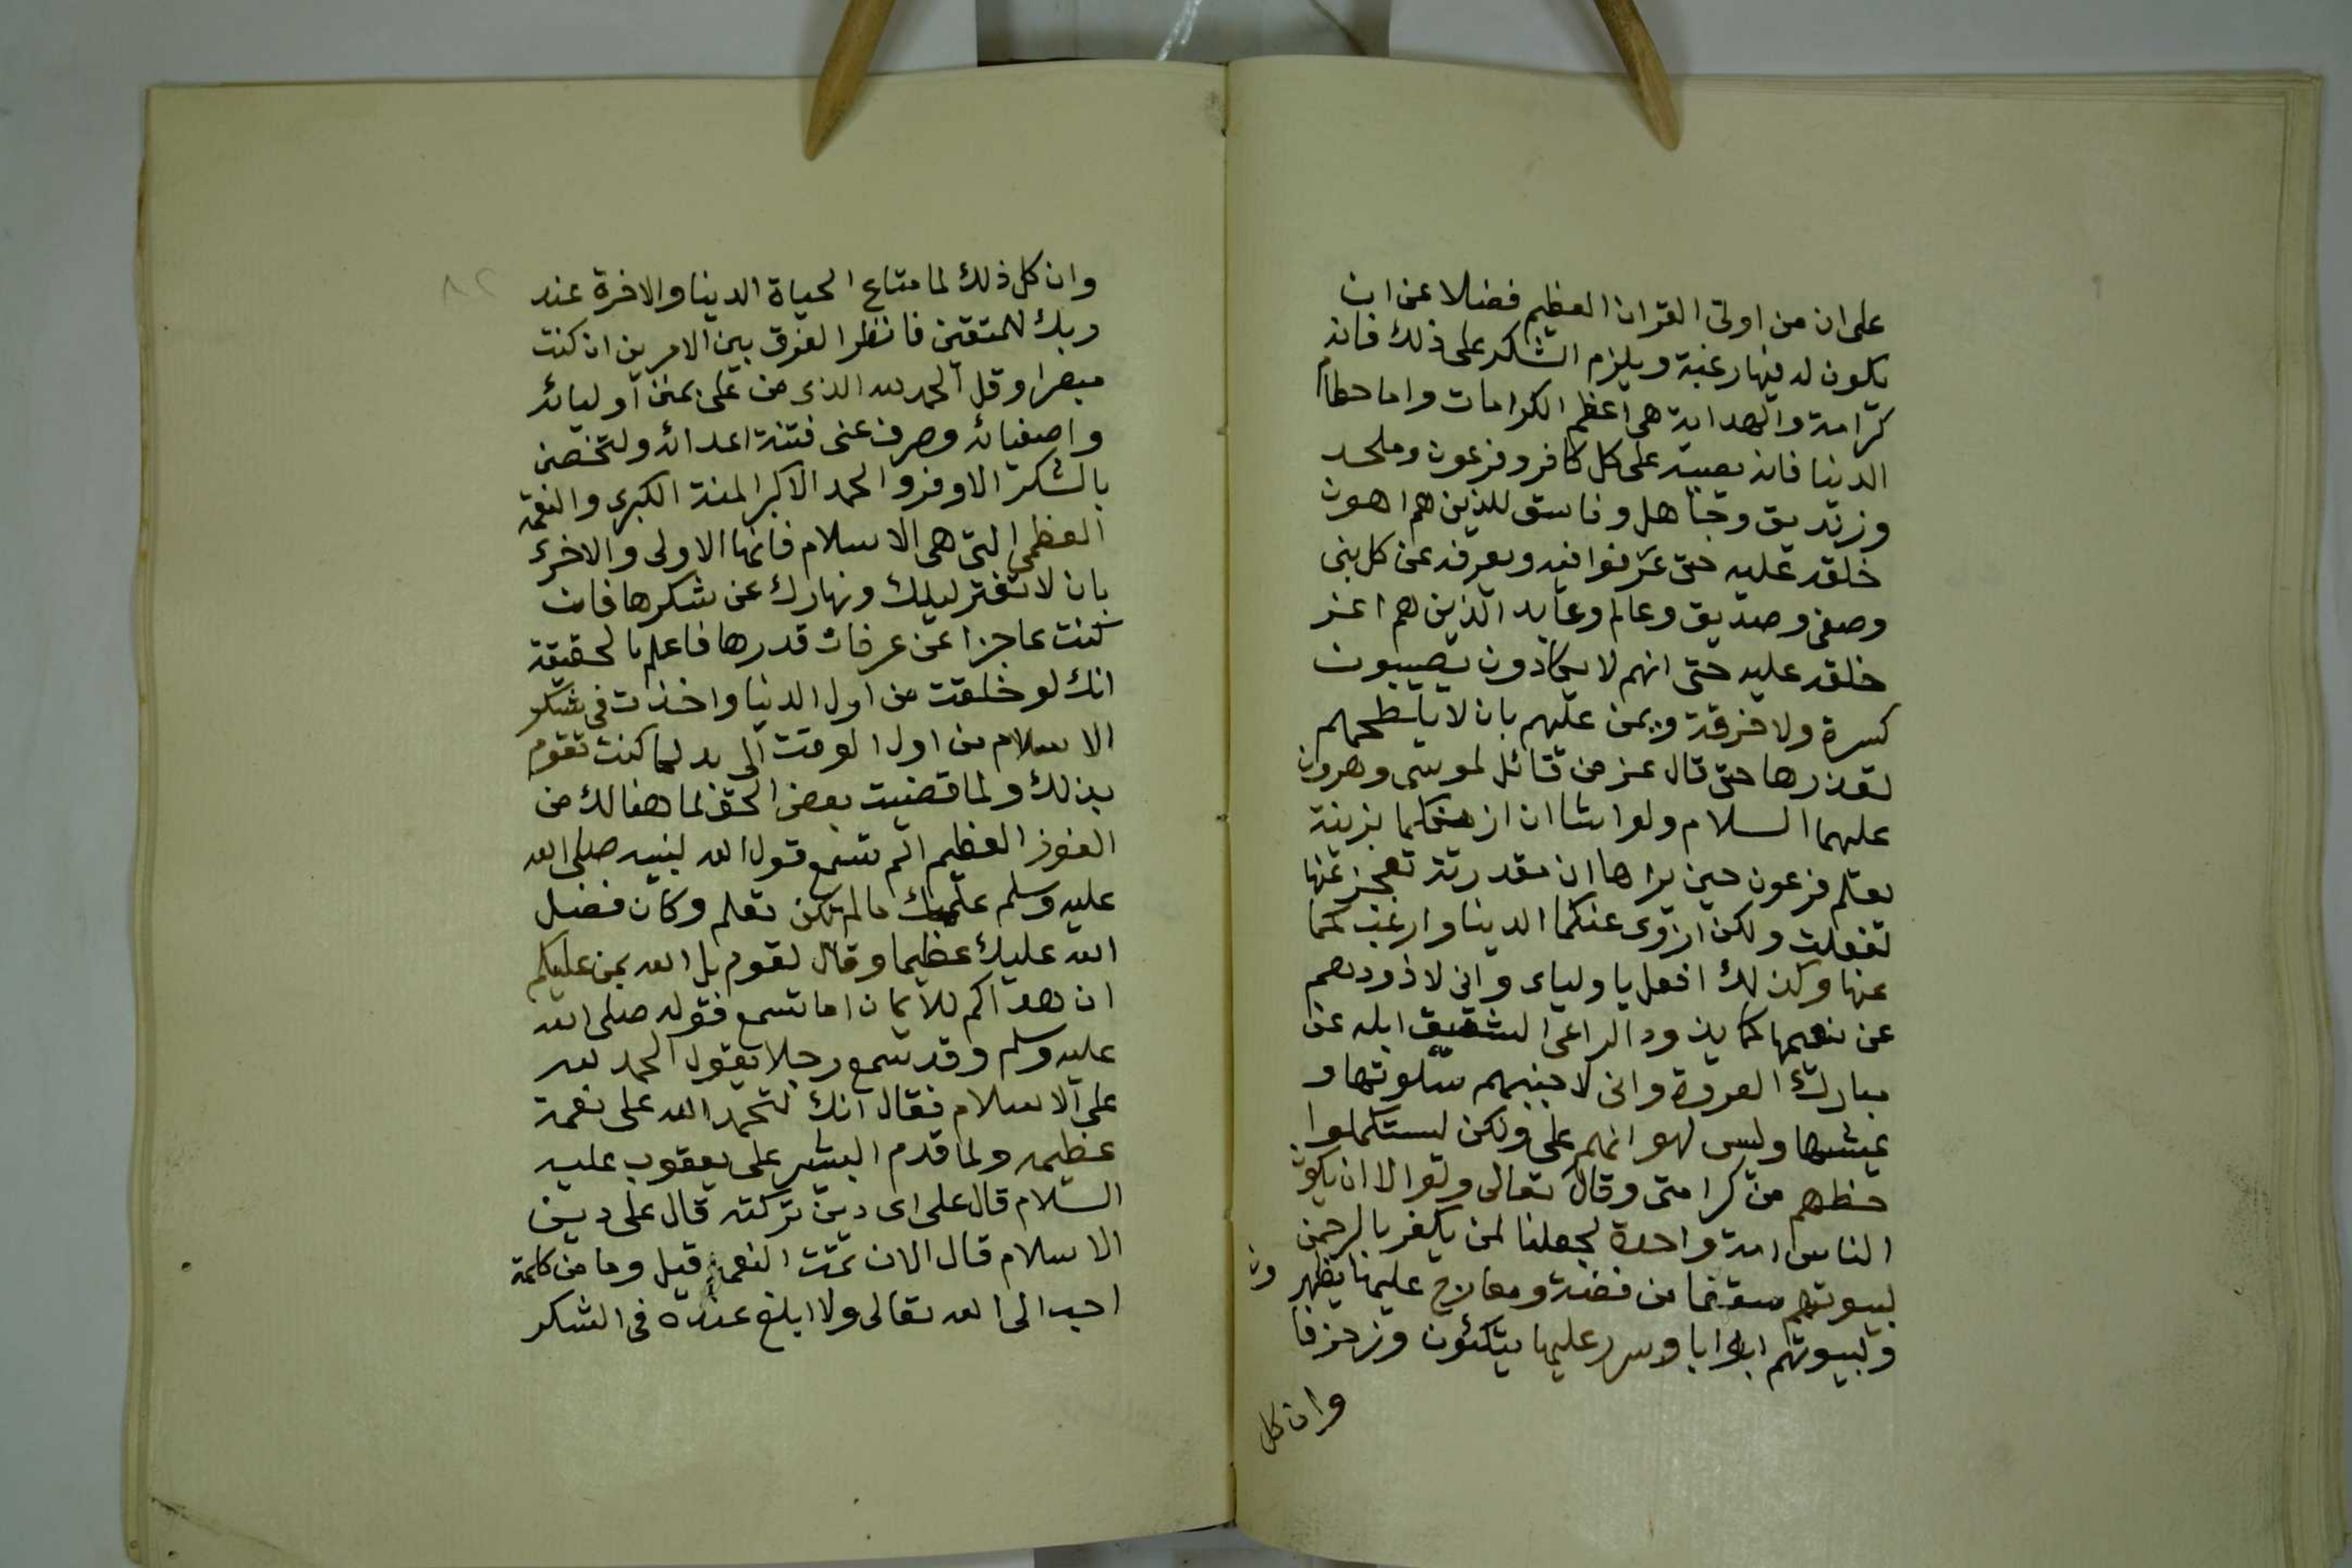 على ان من اوتى القران العظيم فضلا عن ان
يكون له فيها رغبة ويلزم الشكر على ذلك فانه
كرامة والهداية هى اعظم الكرامات واما حطام
الدنيا فانه يصبه على كل كافر وفرعون وملحد
وزنديق وجاهل وفاسق للذين هم اهون
خلقه عليه حتى غرقوا فيه ويصرفه عن كل نبى
وصفى وصديق وعالم وعابد الذين هم اعز
خلقه عليه حتى انهم لا يكادون يصيبون
كسرة ولا خرقة ويمن عليهم بان لا يلطخهم
بقذرها حتى قال عز من قائل لموسى وهرون
عليهما السلام ولو اشا ان ازينكما بزينة
يعلم فرعون حين يراها ان مقدرته تعجز عنها
لفعلت ولكن ازوى عنكما الدينا وارغب بكما
عنها وكذلك افعل باولياء وانى لاذودهم
عن نعيمها كما يذود الراعى الشفيق ابله عن
مبارك العروة وانى لاجنبهم سلوتها و
عيشها وليس لهوانهم على ولكن ليستكملوا
حظهم من كرامتى وقال تعالى ولولا ان يكون
الناس امة واحدة لجعلنا لمن يكفر بالرحمن
لبيوتهم سقفا من فضة ومعارج عليها يظهر ون
ولبيوتهم ابوابا وسرر عليها يتكئون وزخرفا
وان كل
٨٢
وان كل ذلك لما متاع الحياة الدينا والاخرة عند
ربك للمتقين فانظر الفرق بين الامرين ان كنت
مبصرا وقل الحمد لله الذى من على بمنن اوليائه
واصفيائه وصرف عنى فتنة اعدائه ولتخصن
بالشكر الاوفر والحمد الاكبر المنة الكبرى والنعمة
العظمى التى هى الاسلام فانها الاولى والاخرى
بان لا تفتر ليلك ونهارك عن شكرها فان
كنت عاجزا عن عرفان قدرها فاعلم بالحقيقة
انك لو خلقت من اول الدنيا واخذت فى شكر
الاسلام من اول الوقت الى بد لما كنت تقوم
بذلك ولما قضيت بعض الحق لما هنالك من
الفوز العظيم الم تسمع قول الله لنبيه صلى الله
عليه وسلم علمك ما لم تكن تعلم وكان فضل
الله عليك عظيما وقال لقوم بل الله يمن عليكم
ان هداكم للايمان اما تسمع فقوله صلى الله
عليه وسلم وقد سمع رجلا يقول الحمد لله
على الاسلام فقال انك لتحمد الله على نعمة
عظيمه ولما قدم البشير على يعقوب عليه
السلام قال على اى دين تركته قال على دين
الاسلام قال الان تمت النعمة قيل وما من كلمة
احب الى الله تعالى ولا ابلغ عنده فى الشكر